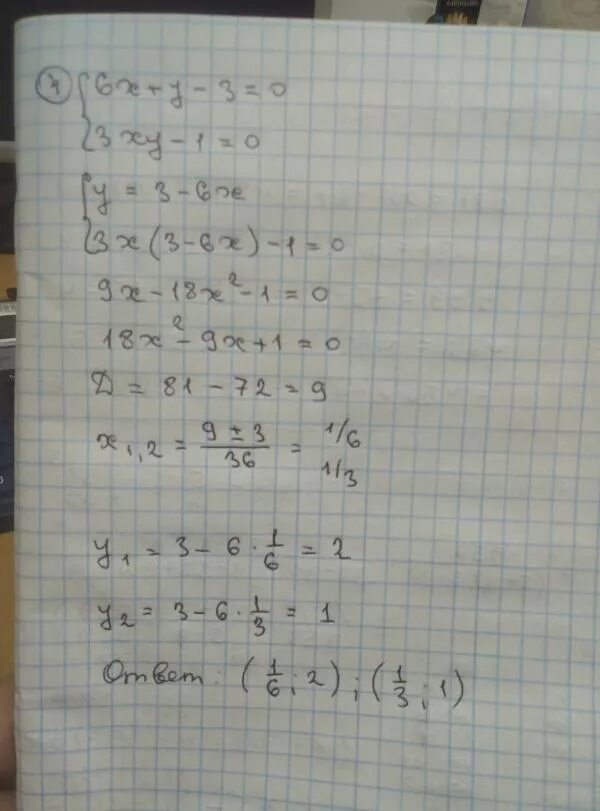 ④ { 6x + y - 3 = 0
{ 3xy - 1 = 0
{ y = 3 - 6x
{ 3x(3 - 6x) - 1 = 0
9x - 18x² - 1 = 0
18x² - 9x + 1 = 0
D = 81 - 72 = 9
x₁,₂ = (9 ± 3)/36 = 1/6
1/3
y₁ = 3 - 6 · 1/6 = 2
y₂ = 3 - 6 · 1/3 = 1
Ответ: (1/6; 2); (1/3; 1)